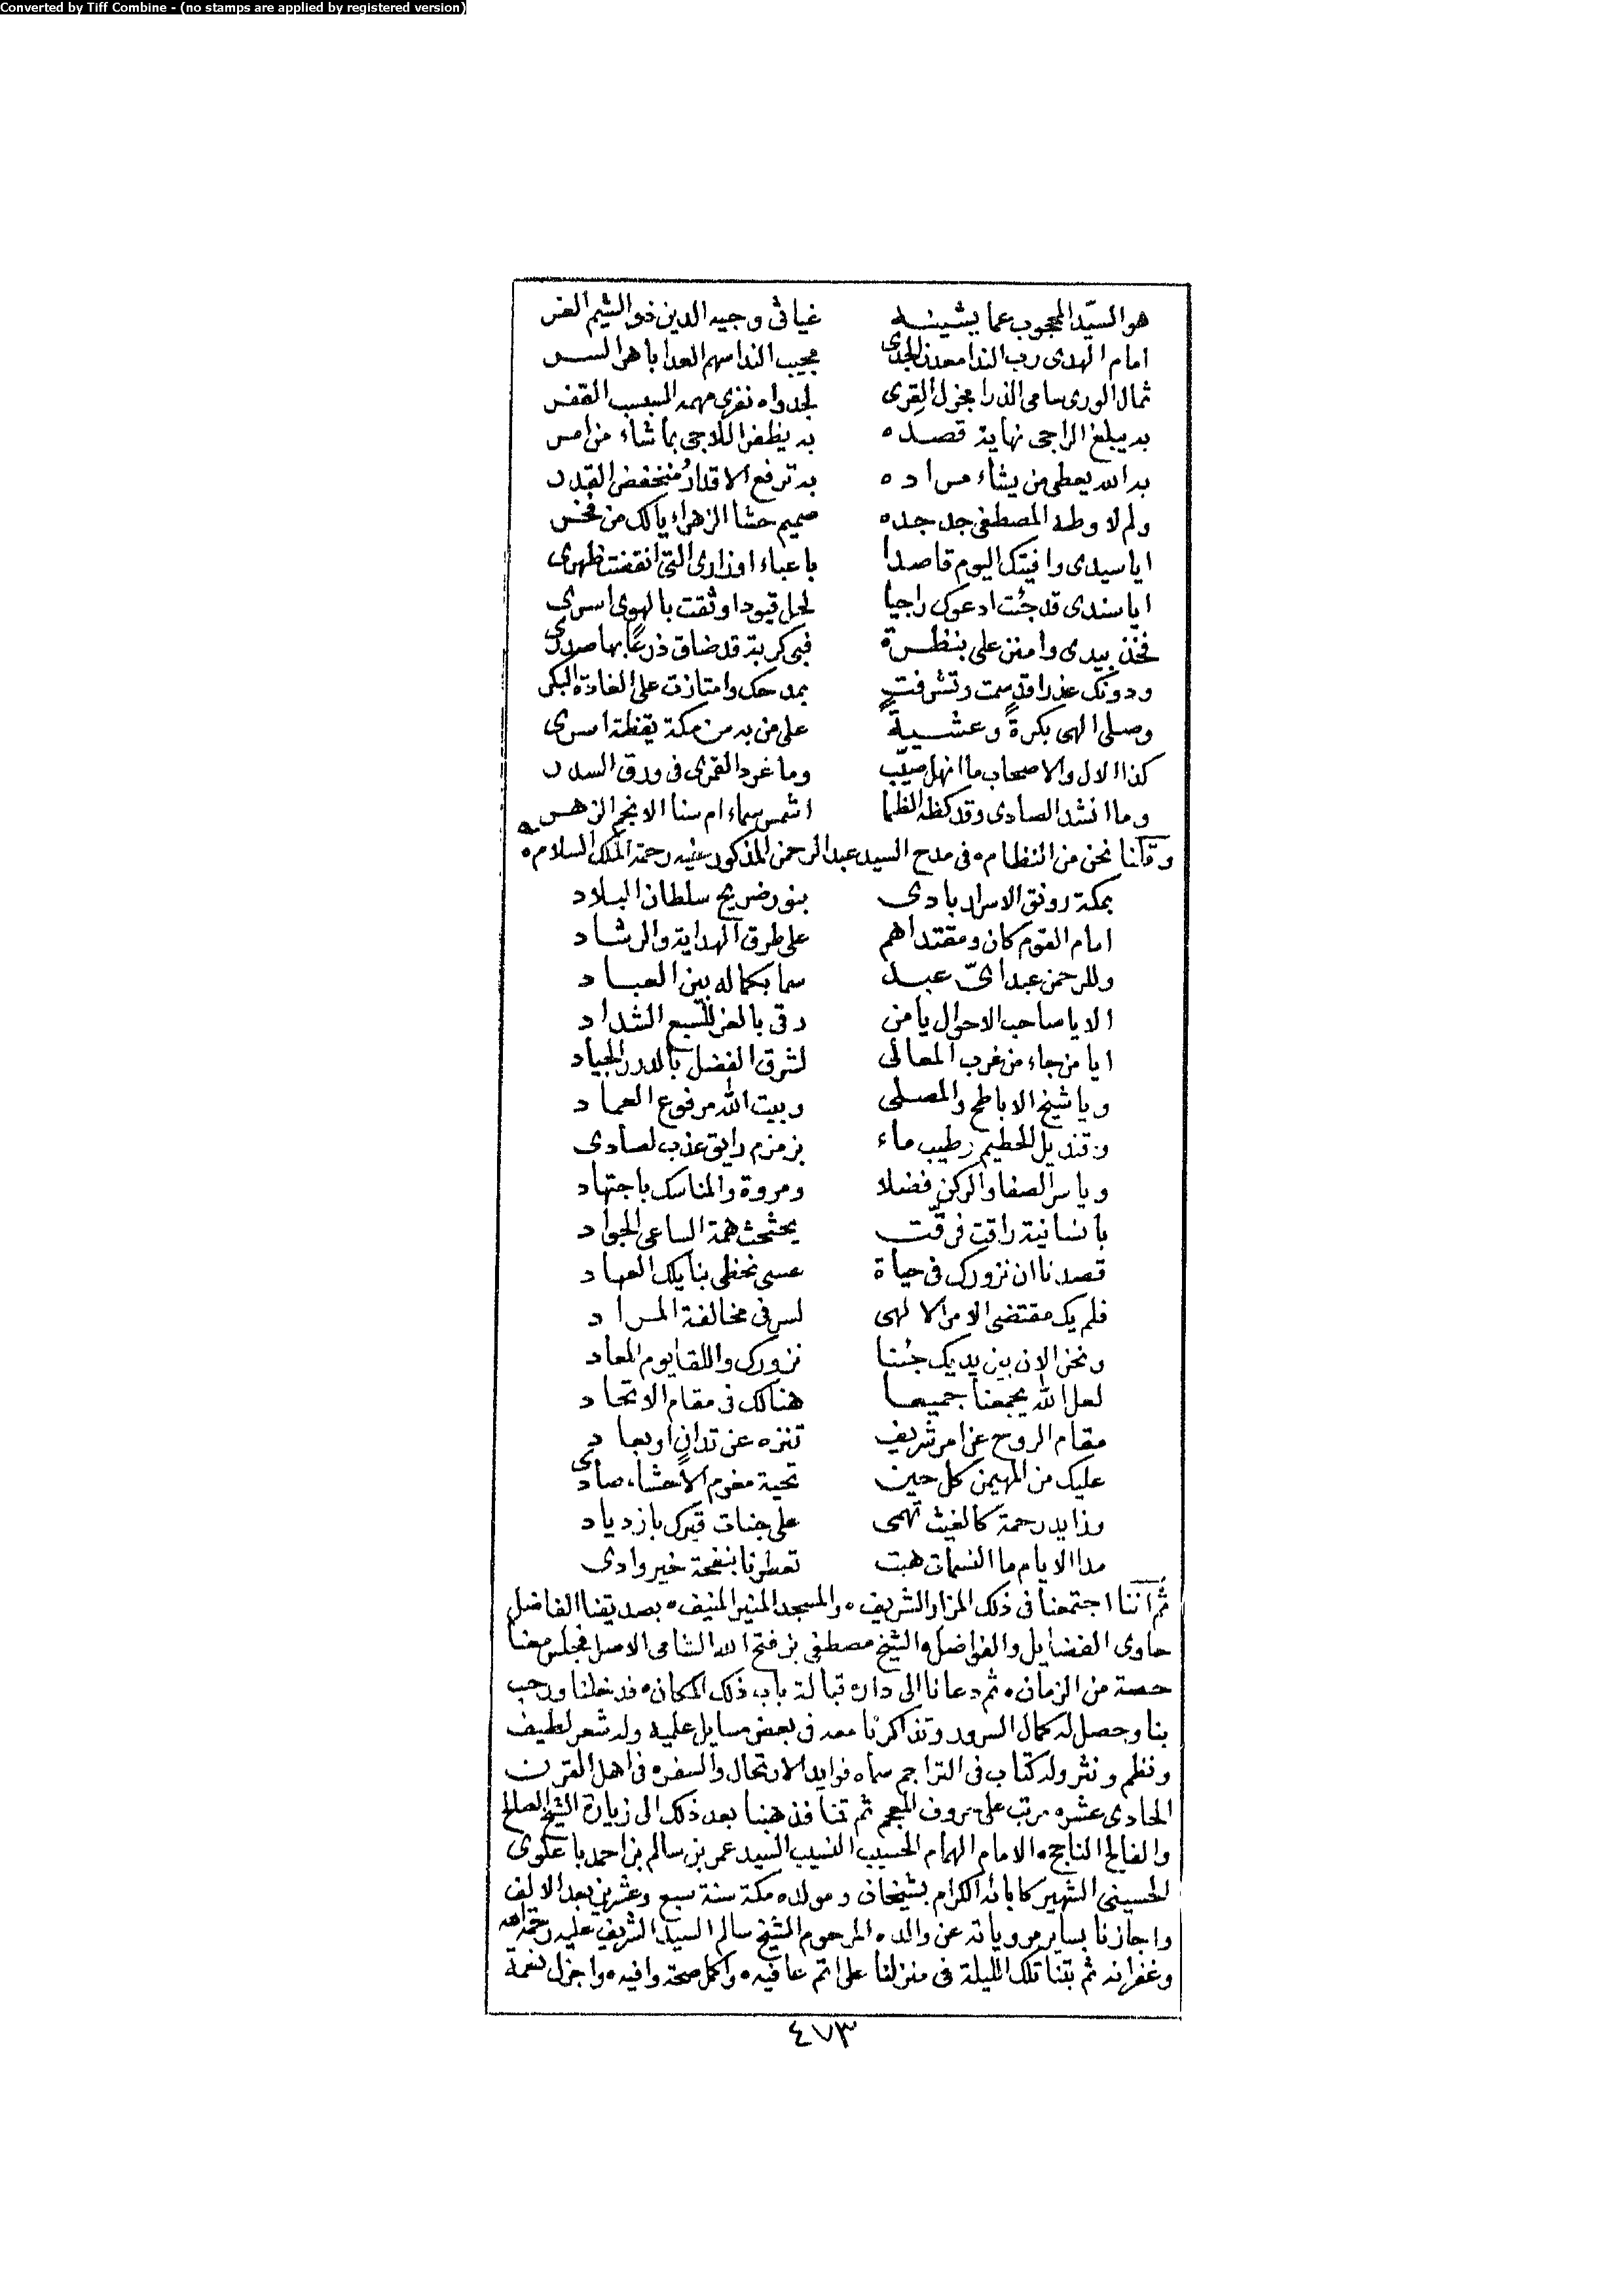 Converted by Tiff Combine - (no stamps are applied by registered version)
هو السيّد المحجوب عما يشينه غياثى وجيه الدين ذو الشيم الغر
امام الهدى رب الندا معدن الجدى مجيب الندا سهم العدا باهر السر
ثمال الورى سامى الذرا مجزل القرى لجدواه نفرى مهمه السبسب القفر
به يبلغ الراجى نهاية قصده به يظفر اللاجى بما شاء من امر
به الله يعطى من يشاء مراده به ترفع الاقدار منخفض القدر
ولم لا وطه المصطفى جد جده صميم حشا الزهراء يالك من فخر
ايا سيدى وافيتك اليوم قاصدا باعباء اوزارى التى انقضت ظهرى
ايا سندى قد جئت ادعوك راجيا لحل قيود اوثقت بالهوى اسرى
فخذ بيدى وامنن على بنظرة فبى كربة قد ضاق ذرعًا بها صدرى
ودونك عذرا قد سمت وتشرفت بمدحك وامتازت على الغادة البكر
وصلى الهى بكرةً وعشيةً على من به من مكة يقظة اسرى
كذا الال والاصحاب ما انهل صيّب وما غرد القمرى فى ورق السدر
وما انشد الصادى وقد كظه الظما اشمس سماء ام سنا الانجم الزهر
وقلنا نحن من النظام ه فى مدح السيد عبد الرحمن المذكور عليه رحمة الملك السلام ه
بمكة رونق الاسرار بادى بنور ضريح سلطان البلاد
امام القوم كان ومقتداهم على طرق الهداية والرشاد
وللرحمن عبد اىّ عبد سما بكماله بين العباد
الا يا صاحب الاحوال يا من رقى بالعز للسبع الشداد
ايا من جاء من غرب المعالى لشرق الفضل بالدرر الجياد
ويا شيخ الاباطح والمصلى وبيت الله مرفوع العماد
وقنديل الحطيم رطيب ماء بزمزم رايق عذب لصادى
ويا سر الصفا والركن فضلا ومروة والمناسك باجتهاد
بانسانية راقت فرقّت يحثحث همة الساعى الجواد
قصدنا ان نزورك فى حياة عسى نحظى بنايلك العهاد
فلم يك مقتضى الامر الالهى لسر فى مخالفة المراد
ونحن الان بين يديك جئنا نزورك واللقا يوم المعاد
لعل الله يجمعنا جميعا هنالك فى مقام الاتحاد
مقام الروح عن امر شريف تنزه عن تدانٍ او بعاد
عليك من المهيمن كل حين تحية مغرم الاحشاء صادى
وزايد رحمة كالغيث تهمى على جنات قبرك بازدياد
مدا الايام ما النسمات هبت تعطرنا بنفحة خير وادى
ثم اننا اجتمعنا فى ذلك المزار الشريف ه والمسجد المنير المنيف ه بصديقنا الفاضل
حاوى الفضايل والفواضل ه الشيخ مصطفى بن فتح الله الشامى الاصل فجلس معنا
حصة من الزمان ه ثم دعانا الى داره قبالة باب ذلك المكان ه فدخلنا ورحب
بنا وحصل له كمال السرور وتذاكرنا معه فى بعض مسايل علميه وله شعر لطيف
ونظم ونثر وله كتاب فى التراجم سماه فوايد الارتحال والسفره فى اهل القرن
الحادى عشره مرتب على حروف المعجم ثم قمنا فذهبنا بعد ذلك الى زيارة الشيخ الصالح
والفالح الناجح ه الامام الهمام الحسيب النسيب السيد عمر بن سالم بن احمد با علوى
الحسينى الشهير كابائه الكرام بشيخان ومولده مكة سنة سبع وعشرين بعد الالف
واجازنا بساير مروياته عن والده المرحوم الشيخ سالم السيد الشريف عليه رحمة الله
وغفرانه ثم بتنا تلك الليلة فى منزلنا على اتم عافيه ه واكمل صحة وافيه ه واجزل نعمة
٤٧٣